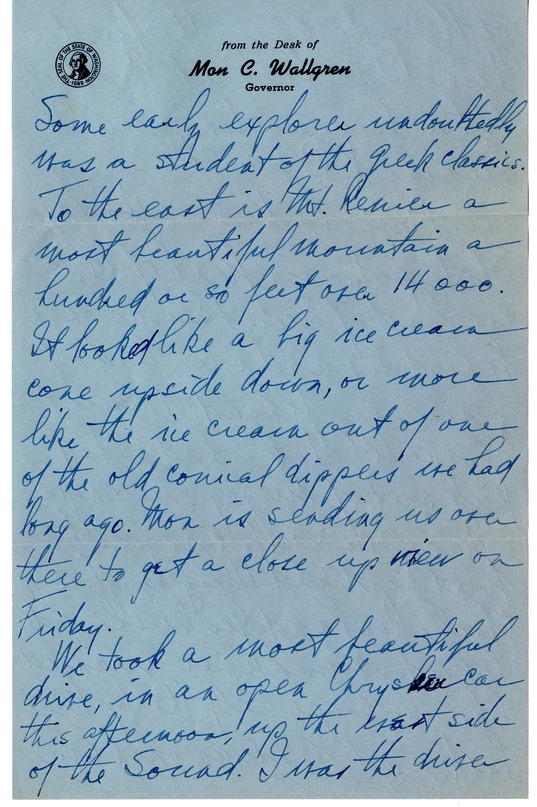 THE SEAL OF THE STATE OF WASHINGTON
1889
from the Desk of
Mon C. Wallgren
Governor
Some early explorer undoubtedly
was a student of the Greek classics.
To the east is Mt. Renier a
most beautiful mountain a
hundred or so feet over 14000.
It looked like a big ice cream
cone upside down, or more
like the ice cream out of one
of the old conical dippers we had
long ago. Mon is sending us over
there to get a close up view on
Friday.
We took a most beautiful
drive, in an open Chrysler car
this afternoon, up the west side
of the Sound. I was the driver